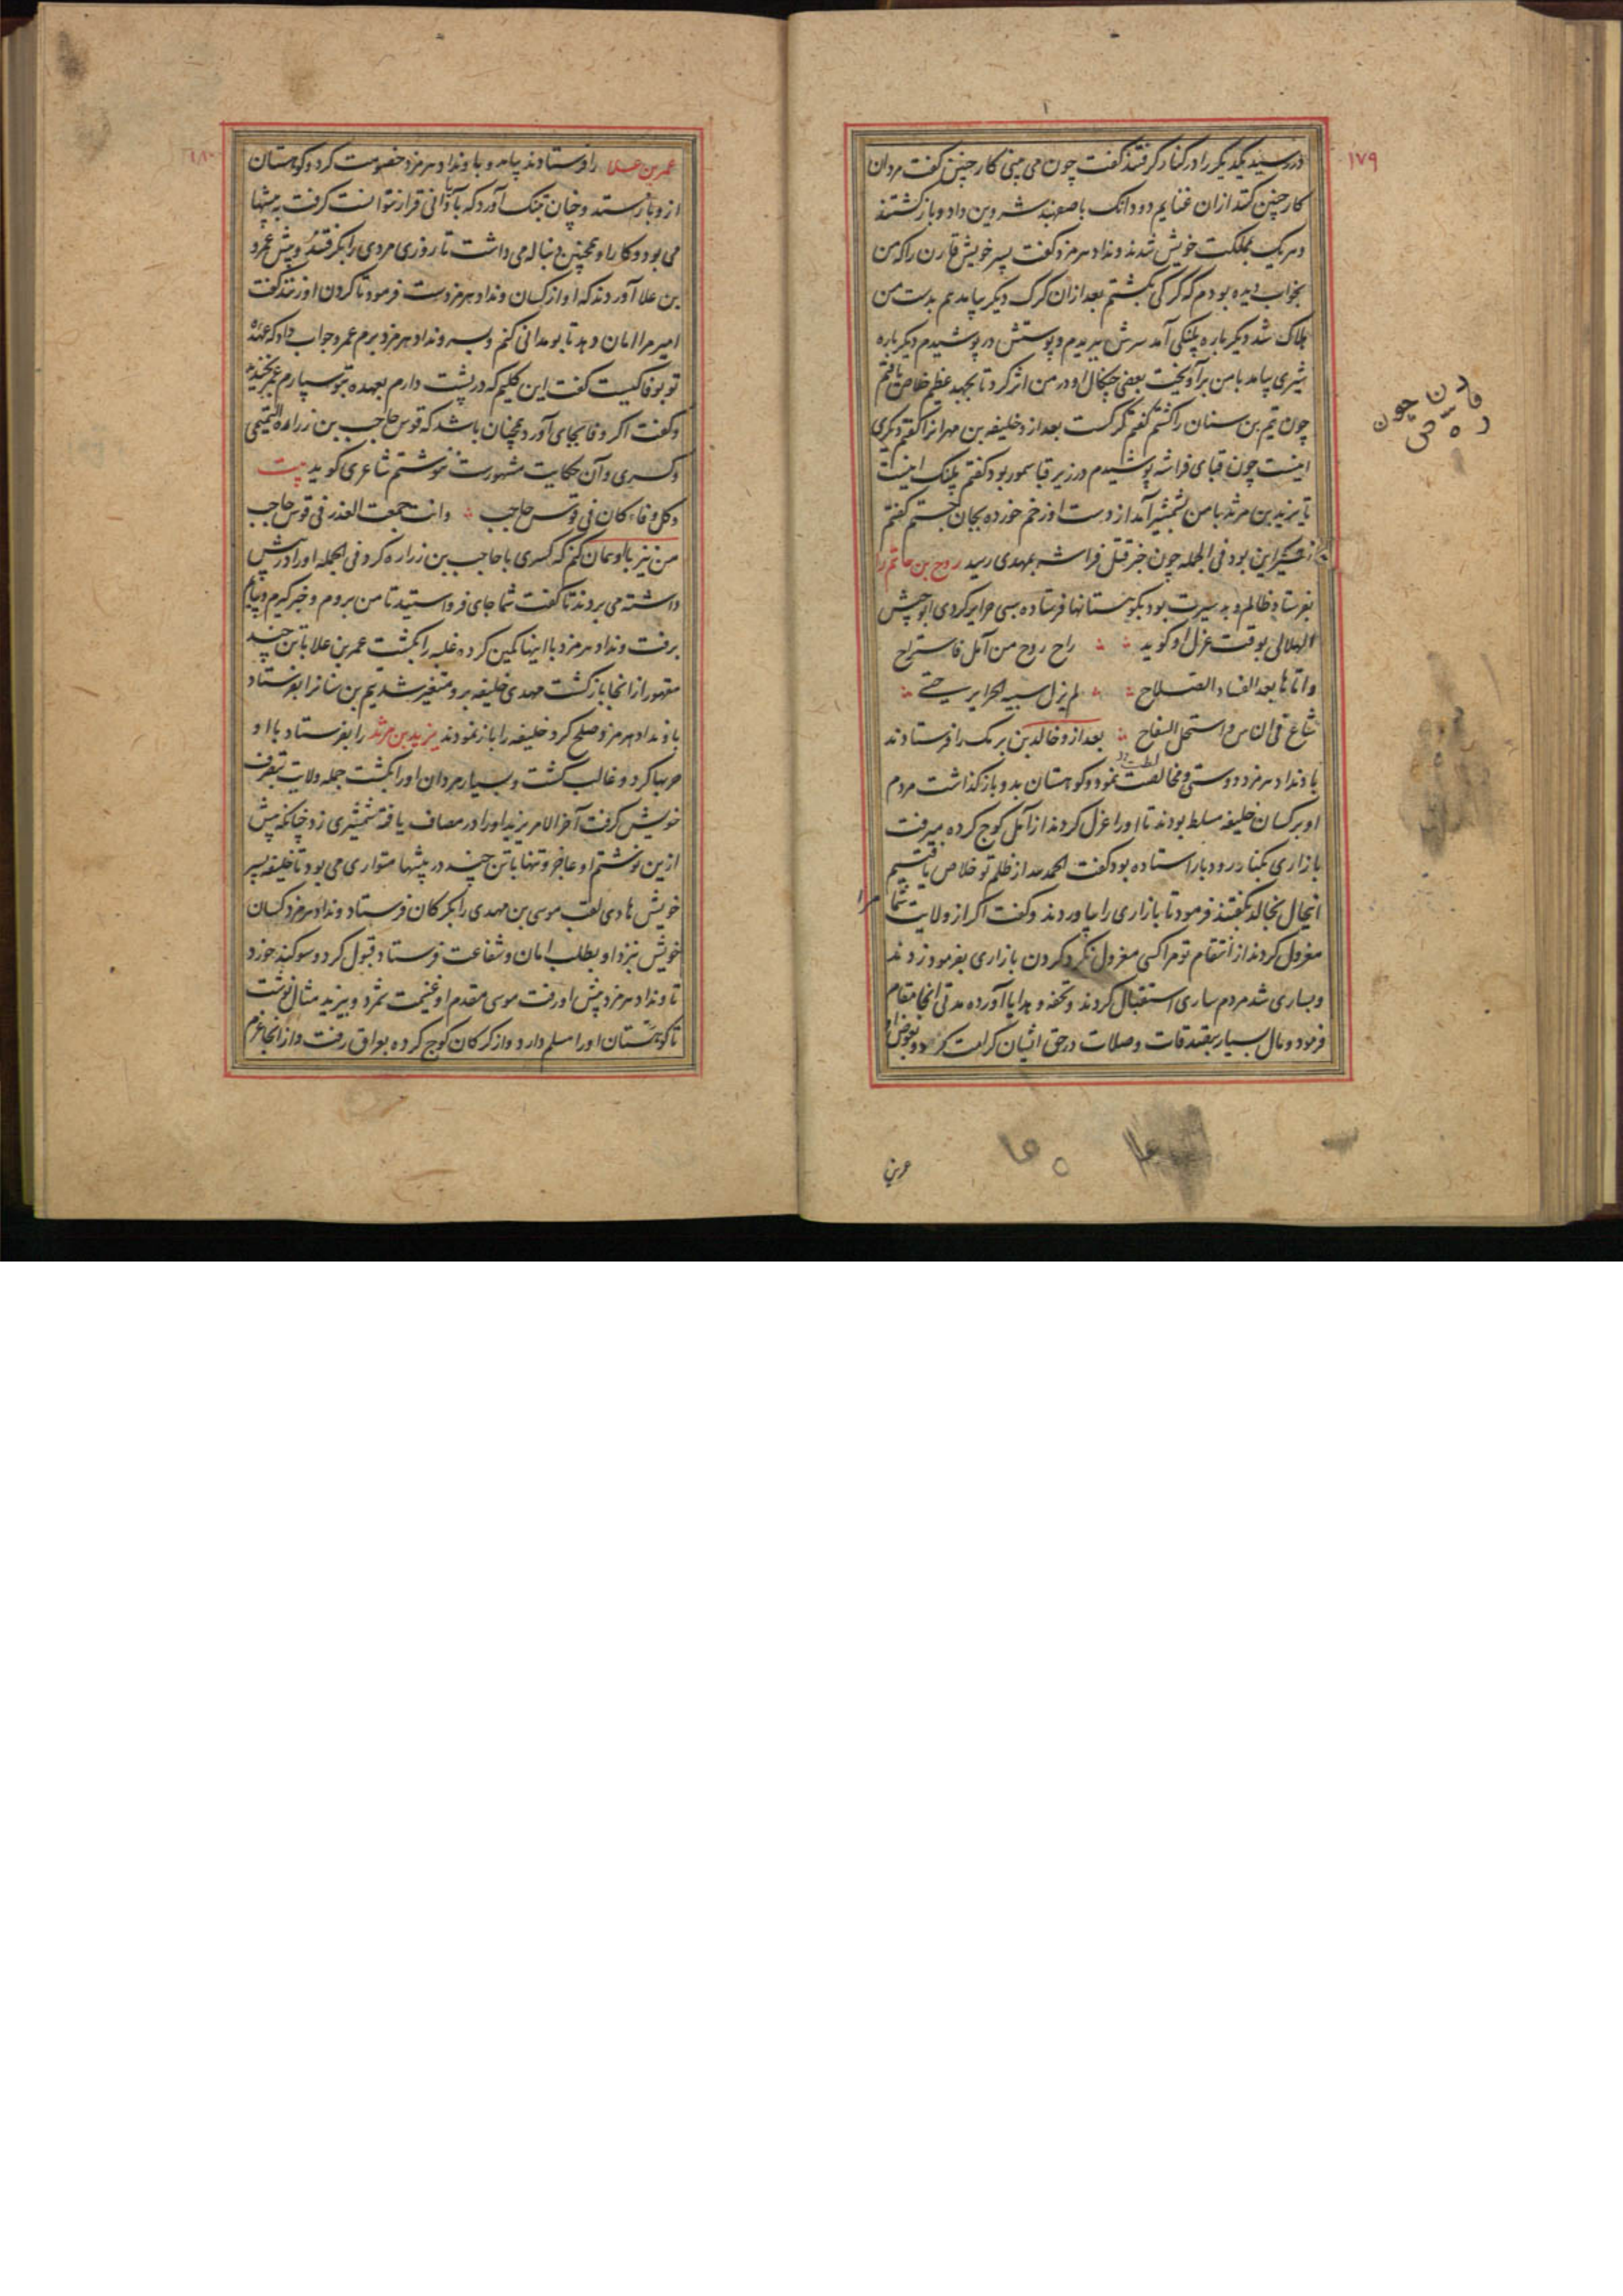 ۱۷۹
در رسیدند یکدیگر را در کنار گرفتند گفت چون می بینی کار چنین گفت مردان
کار چنین کنند ازان غنایم دو دانگ باصفهبد شروین داد و باز گشتند
و هر یک بمملکت خویش شدند ونداد هرمزد گفت پسر خویش قارن را که من
بخواب دیده بودم که گرگی بکشتم بعد ازان گرگ دیگر بیامد هم بدست من
هلاک شد دیگر باره پلنگی آمد سرش ببریدم و پوستش در پوشیدم دیگر باره
شیری بیامد با من برآویخت بعضی چنگال او در من اثر کرد تا بجهد عظیم خلاص یافتم
چون تمیم بن سنان را کشتم گفتم گرگست بعد ازو خلیفه بن مهران را گفتم دیگری
اینست چون قبای فراشه پوشیدم در زیر قبا سمور بود گفتم پلنگ اینست
تا یزید بن مرثد با من بشمشیر آمد از دست او زخم خورده بجان جستم گفتم
شیر این بود فی الجمله چون خبر قتل فراشه بمهدی رسید روح بن حاتم را
بفرستاد ظالم و بد سیرت بود بکوهستانها فرستاده بسی حرایر کردی ابو حبش
الهلالی بوقت عزل او گوید راح روح من آمل فاستراح
واتاها بعد الفساد الصلاح لم یزل سبیه الحرایر حتی
شاع فی الناس واستحل السفاح بعد ازو خالد بن برمک را فرستادند
با ونداد هرمزد دوستی و مخالصت نمود و کوهستان بدو باز گذاشت مردم
او بر کسان خلیفه مسلط بودند تا او را عزل کردند از آمل کوچ کرده میرفت
بازاری بکنار رودبار استاده بود گفت الحمد لله از ظلم تو خلاص یافتیم
اینحال بخالد بگفتند فرمود تا بازاری را بیاوردند و گفت اگر از ولایت شما مرا
معزول کردند از انتقام تو مرا کسی معزول نکرد گردن بازاری بفرمود زدند
و بساری شد مردم ساری استقبال کردند و تحفه و هدایا آورده مدتی آنجا مقام
فرمود و مال بسیار بصدقات و صلات در حق ایشان کرامت کرد و بعوض او
عمر بن
قارن چون
۱۸۰
عمر بن علا را فرستادند بیامد و با ونداد هرمزد خصومت کرد و کوهستان
ازو باز ستد و چنان تنگ آورد که بآبادانی قرار نتوانست گرفت به بیشها
می بود و کار او همچنین دنباله می داشت تا روزی مردی را بگرفتند و پیش عمرو
بن علا آوردند که او از کسان ونداد هرمزدست فرمود تا گردن او زنند گفت
امیر مرا امان دهد تا بومدانی کنم و بسر ونداد هرمزد برم عمرو جواب داد که عهده
تو بوفا کیست گفت این گلیم که در پشت دارم بعهده بتو سپارم عمر بخندید
و گفت اگر وفا بجای آورد همچنان باشد که قوس حاجب بن زراره التمیمی
و کسری و آن حکایت مشهورست ننوشتم شاعری گوید بیت
وکل وفاء کان فی قوس حاجب وانت جمعت الغدر فی قوس حاجب
من نیز با او همان کنم که کسری با حاجب بن زراره کرد فی الجمله او را در پیش
داشته می بردند تا گفت شما جای فرو استید تا من بروم و خبر گیرم و بیایم
برفت ونداد هرمزد با اینها کمین کرده غلبه را بکشت عمر بن علا با تن چند
مقهور از آنجا باز گشت مهدی خلیفه برو متغیر شد تمیم بن سنان را بفرستاد
با ونداد هرمزد صلح کرد خلیفه را باز نمودند یزید بن مرثد را بفرستاد با او
حربها کرد و غالب گشت و بسیار مردان او را بکشت جمله ولایت بتصرف
خویش گرفت آخر الامر یزید او را در مصاف یافته شمشیری زد چنانکه پیش
ازین نوشتم او عاجز و تنها با تن چند در بیشها متواری می بود تا خلیفه پسر
خویش هادی لقب موسی بن مهدی را بگرگان فرستاد ونداد هرمزد کسان
خویش بنزد او بطلب امان و شفاعت فرستاد قبول کرد و سوگند خورد
تا ونداد هرمزد پیش او رفت موسی مقدم او غنیمت شمرد و بیزید مثال نوشت
تا کوهستان او را مسلم دارد و از گرگان کوچ کرده بعراق رفت و از آنجا عزم